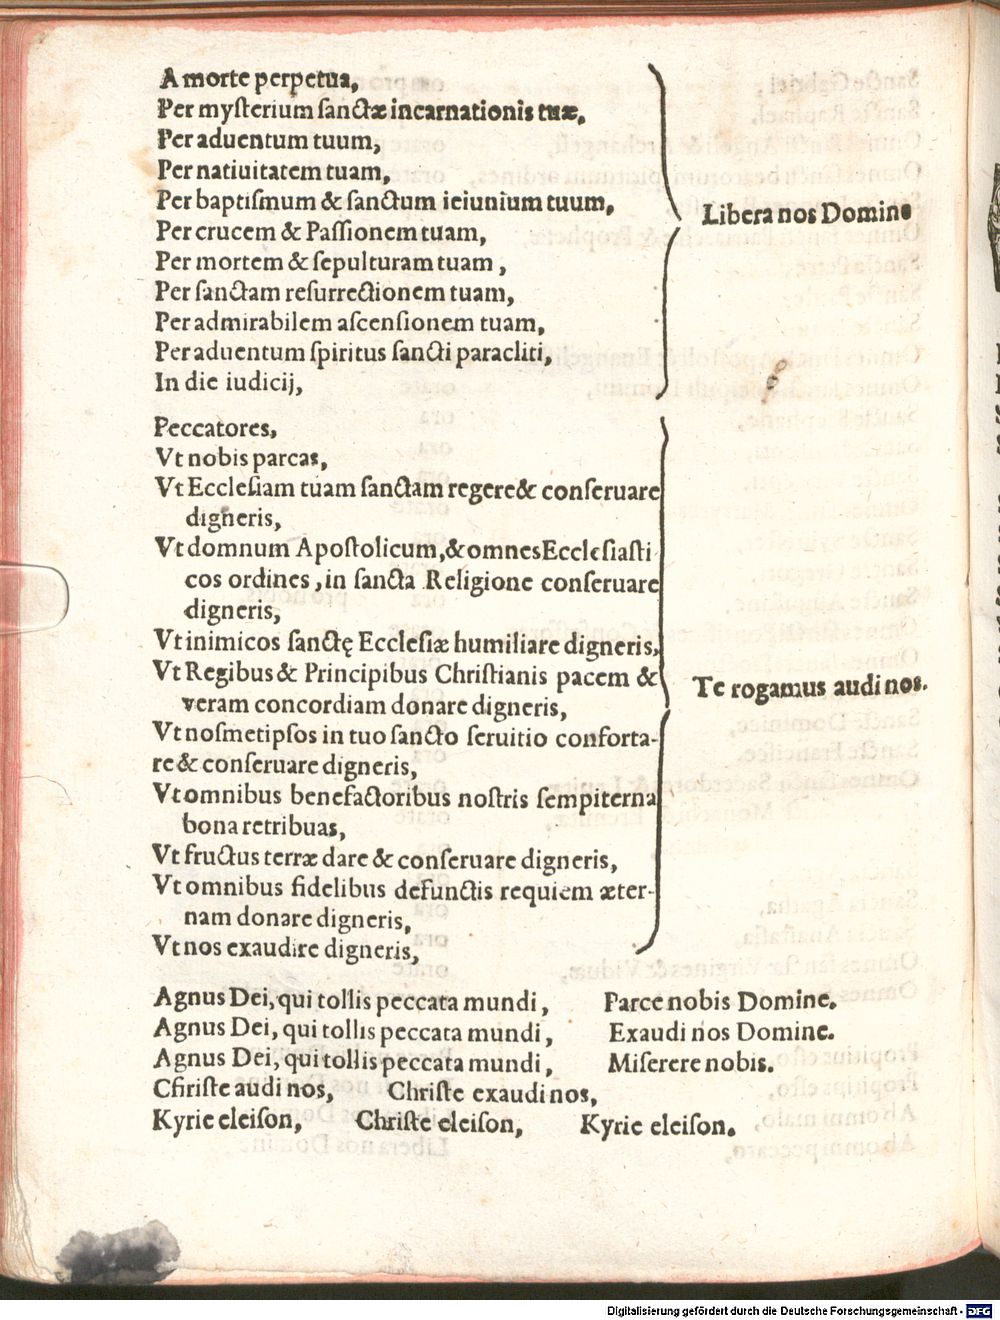 A morte perpetua,
Per myſterium ſanctæ incarnationis tuæ,
Per aduentum tuum,
Per natiuitatem tuam,
Per baptiſmum & ſanctum ieiunium tuum,
Libera nos Domine
Per crucem & Paſſionem tuam,
Per mortem & ſepulturam tuam,
Per ſanctam reſurrectionem tuam,
Per admirabilem aſcenſionem tuam,
Per aduentum ſpiritus ſancti paracliti,
In die iudicij,
Peccatores,
Vt nobis parcas,
Vt Eccleſiam tuam ſanctam regere & conſeruare
digneris,
Vt domnum Apoſtolicum, & omnes Eccleſiaſti
cos ordines, in ſancta Religione conſeruare
digneris,
Vt inimicos ſanctę Eccleſiæ humiliare digneris,
Vt Regibus & Principibus Chriſtianis pacem &
Te rogamus audi nos.
veram concordiam donare digneris,
Vt noſmetipſos in tuo ſancto ſeruitio conforta-
re & conſeruare digneris,
Vt omnibus benefactoribus noſtris ſempiterna
bona retribuas,
Vt fructus terræ dare & conſeruare digneris,
Vt omnibus fidelibus defunctis requiem æter-
nam donare digneris,
Vt nos exaudire digneris,
Agnus Dei, qui tollis peccata mundi, Parce nobis Domine.
Agnus Dei, qui tollis peccata mundi, Exaudi nos Domine.
Agnus Dei, qui tollis peccata mundi, Miſerere nobis.
Chriſte audi nos, Chriſte exaudi nos,
Kyrie eleiſon, Chriſte eleiſon, Kyrie eleiſon.
Digitalisierung gefördert durch die Deutsche Forschungsgemeinschaft - DFG